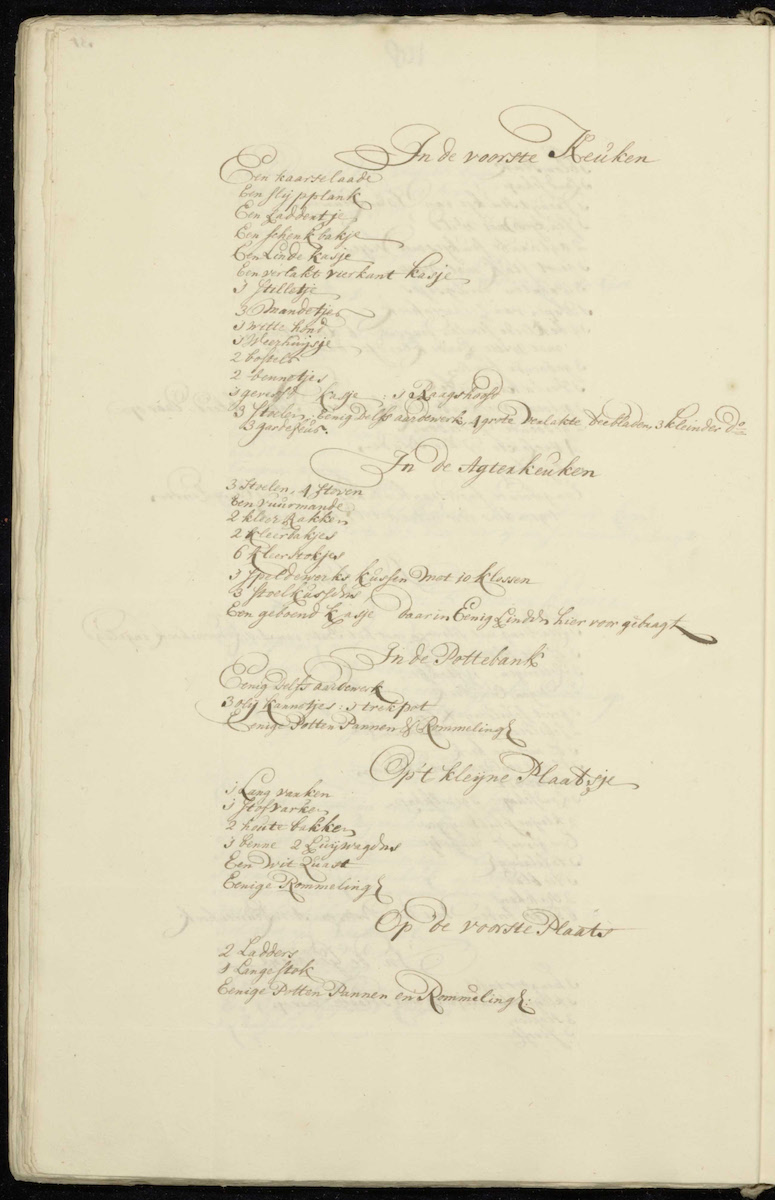 In de voorste Keuken
Een kaarse laade
Een slijpplank
Een Laddentje
Een schenkbakje
Een Linde kasje
Een verlakt vierkant kasje
1 stilletje
3 Mandetjes
1 witte hond
1 Weerhuijsje
2 bostels
2 bennetjes
1 kasje : 1 Raagshoofd
3 Stoelen, Eenig Delfs aardewerk, 4 grote Verlakte Teebladen, 3 kleinder do
3 gardefeus.
In de Agterkeuken
3 Stoelen, 4 Stoven
Een vuurmande
2 kleer Rakken
2 kleerbakjes
6 kleerstokjes
1 speldewerks kussen met 10 klossen
3 stoelkussens
Een geboend kasje daarin Eenig Linden hier voor gebragt
In de Pottebank
Eenig Delfs aardewerk
3 olij kannetjes : 1 trekpot
Eenige Potten Pannen & Rommeling
Op 't kleyne Plaatsje
1 Lang varken
1 Stofvarken
2 houte bakken
1 benne 2 Luijwagens
Een wit Quast
Eenige Rommeling
Op de voorste Plaats
2 Ladders
1 Lange stok
Eenige Potten Pannen en Rommeling :